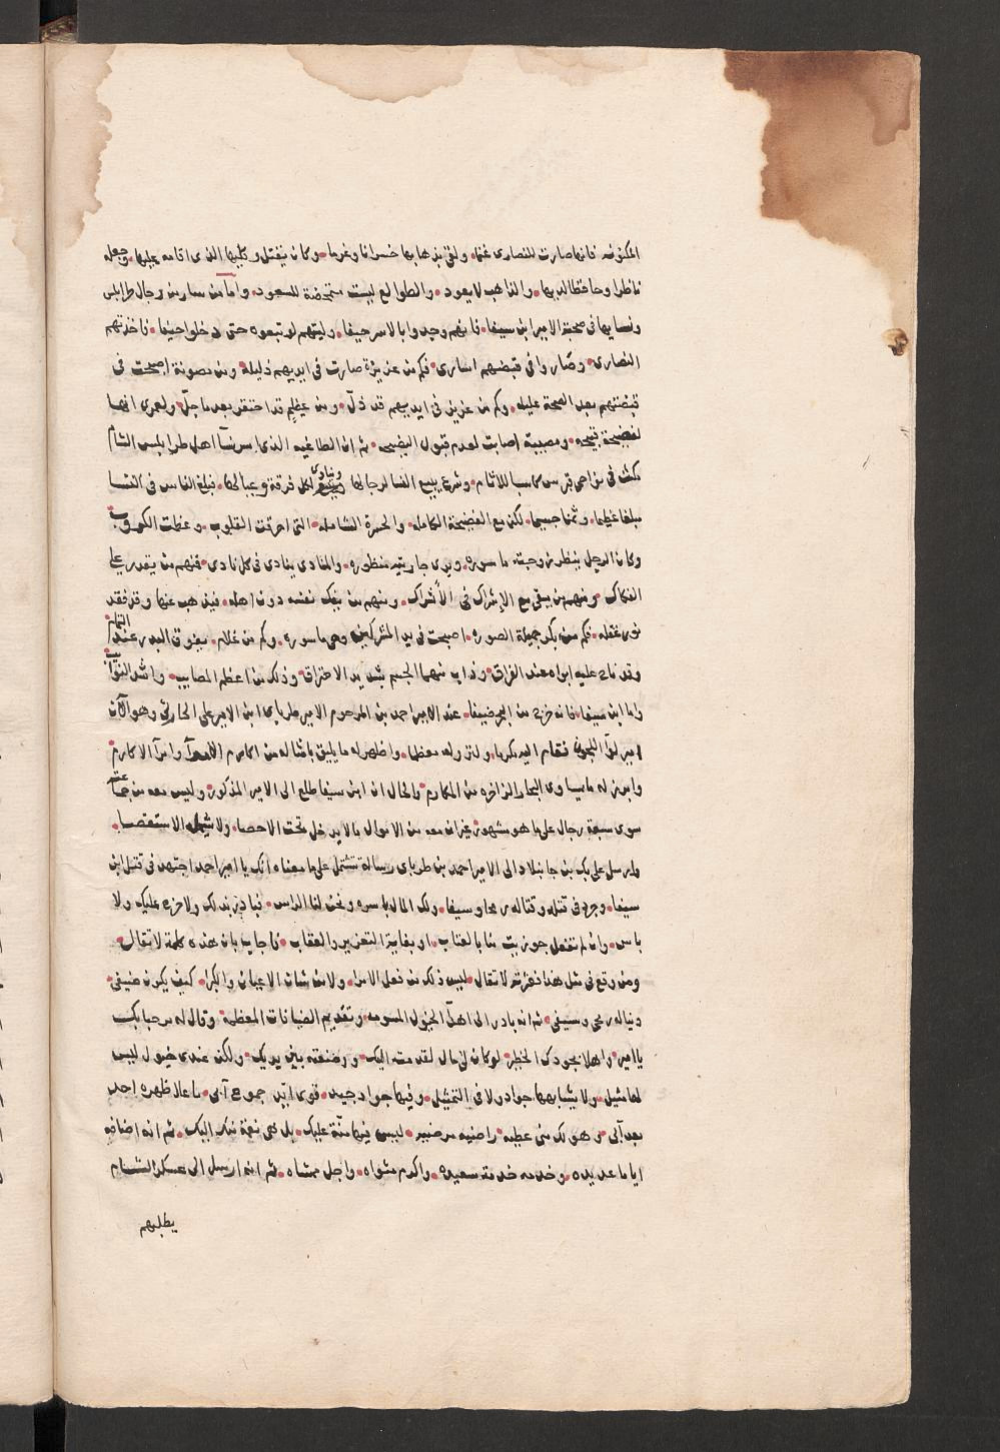 المكنونه فانها صارت للنصارى غنما. ولقى بذهابها خسرانا وغرما. وكان يقتل وكليها الذى اقامه عليها. وجعله
ناظرا وحافظا لديها. والذاهب لا يعود. والطوالع ليست متمحضة للسعود. واما من سار من رجال طرابلس
ونسايها فى صحبة الامير ابن سيفا. فانهم وجدوا بالاسر حيفا. وليتهم لا تبعوه حتى دخلوا حيفا. فاخذتهم
النصارى. وصاروا فى قبضهم اسارى. فكم من عزيزة صارت فى ايديهم ذليله. ومن مصونة اصبحت فى
قبضتهم بعد الصحة عليله. وكم من عزيز فى ايديهم قد ذل. ومن عظيم قد احتقر بعد ما جل. ولعمرى انها
لفضيحة قبيحه. ومصيبة اصابت لعدم قبول النصيحه. ثم ان الطاغيه الذى اسر نسآ اهل طرابلس الشام
مكث فى نواحى قبرس كاسبا للاثام. وشرع يبيع النسا لرجالها وينادى لكل فرقة وعيالها. فبلغ الناس فى النسا
مبلغا عظيما. وثمنا جسيما. لكن مع الفضيحة الكامله. والحسرة الشامله. التى احرقت القلوب. وعظت الكروب
وكان الرجل ينظر زوجته ماسوره. ويرى جاريته منظوره. والمنادى ينادى فى كل نادى. فمنهم من يقدر على
الفكاك. ومنهم من يبقى مع الاشراك فى الأشراك. ومنهم من يفك نفسه دون اهله. فيذهب عنها وقد فقد
نور عقله. فكم من بكر جميلة الصوره. اصبحت فى يد المشركين وهى ماسوره. وكم من غلام. يفوق البدر عند التمام
وقد ناح عليه ابواه عند الفراق. وذاب منهما الجسم بشديد الاحتراق. وذلك من اعظم المصايب. واشد النوايب
واما ابن سيفا. فانه خرج من البحر ضيفا. عند الامير احمد بن المرحوم الامير طرباى ابن الامير على الحارثى وهو الآن
امير لوآ اللجون فقام اليه مكرما. ولنزوله معظما. واظهر له ما يليق بامثاله من اكارم الامرآ وامرآ الاكارم
وابرز له ما يساوى البحار الزاخره من المكارم. والحال ان ابن سيفا طلع الى الامير المذكور. وليس معه من جماعته
سوى سبعة رجال على ما هو مشهور. غير ان معه من الاموال ما لا يدخل تحت الاحصا. ولا شمله الاستقصا.
وارسل على بك بن جانبلاد الى الامير احمد بن طرباى رسالة تشتمل على ما معناه انك يا امير احمد اجتهد فى قتل ابن
سيفا. وجرد فى قتله وقتاله رمحا وسيفا. ولك المال باسره ونحن لنا الراس. فبادر بذلك ولا حرج عليك ولا
باس. وان لم تفعل جوزيت منا بالعتاب. او بغاية التعزير والعقاب. فاجاب بان هذه كلمة لا تقال.
ومن وقع فى مثل هذا فعثرته لا تقال. ليس ذلك من فعل الامرا. ولا من شان الاعيان والكبرا. كيف يكون ضيفى.
ويناله رمحى وسيفى. ثم انه بادر الى اهدآ الخيول المسومه. وتقديم الضيافات المعظمة. وقال له مرحبا بك
يا امير. واهلا بجودك الخطير. لو كان لى مال لقدمته اليك. ووضعته بين يديك. ولكن عندى خيول ليس
لها مثيل. ولا يشابهها جواد ولا فى التمثيل. وفيها جواد جيد. قوى ايد جموح آبى. ما علا ظهره احد
بعد آبى. وهو لك منى عطيه. راضيه مرضيه. ليس فيها منة عليك. بل هى نعمة منك اليك. ثم انه اضافه
اياما عديده. وخدمه خدمة سعيده. واكرم مثواه. واجل ممشاه. ثم انه ارسل الى عسكر الشام
يطلبهم